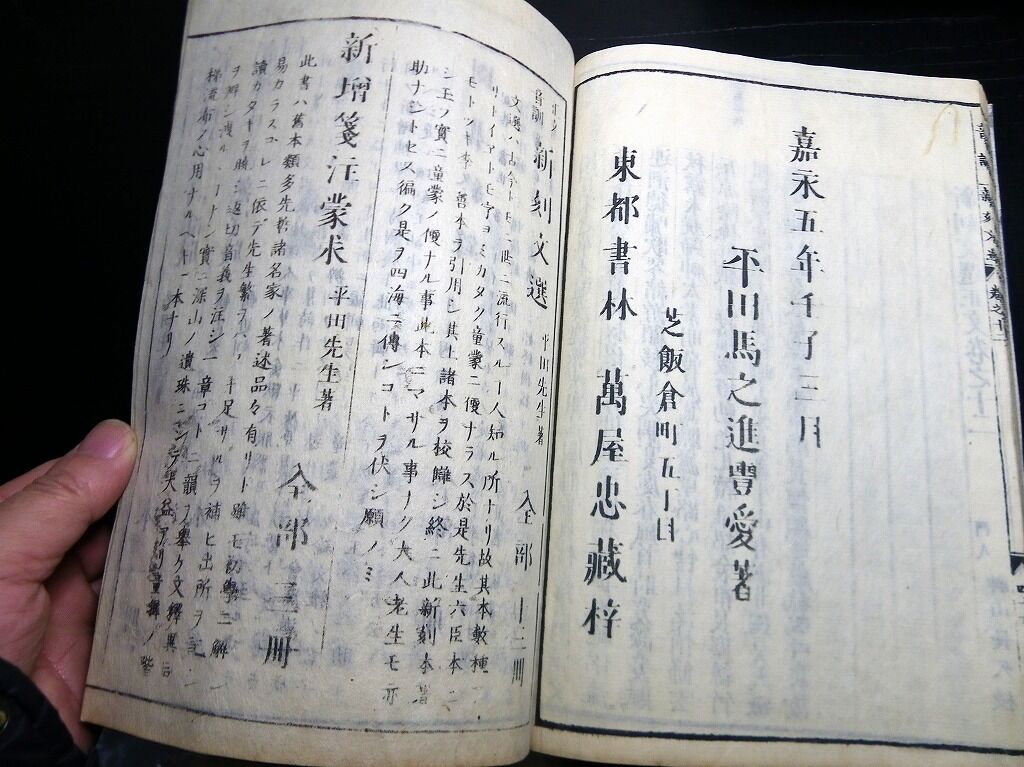 嘉永五年壬子三月
平田馬之進豊愛著
芝飯倉町五丁目
東都書林 萬屋忠藏梓
音訓 新刻文選 平田先生著 全部 十三冊
文選ハ古今トモニ世ニ流行スルヿ人知ル所ナリ故其本數種
リトイヘトモ字ヨミカタク童蒙ニ便ナラス於是先生六臣本ニ
モトツキ李 善本ヲ引用シ其上諸本ヲ校讎シ終ニ此新刻本
シ玉フ實ニ童蒙ノ便ナル事此本ニマサル事ナク大人老生モ亦
助ナシトセス徧ク是ヲ四海ニ傳シコトヲ伏シ願ノミ
新增箋注蒙求 平田先生著 全部 三冊
此書ハ舊本類多先哲諸名家ノ著述品々有リト雖モ幼學ニ解
易カラスコレニ依テ先生繁ヲハ 不足サルヲ補ヒ出所ヲ記シ
讀カタキヲ 返切音義ヲ注シ一章コトニ韻ヲ擧ク文釋異旨
實ニ深山ノ遺珠ニシテ大益アリ童釋ノ階
梯 心用ナルヘキ一本ナリ